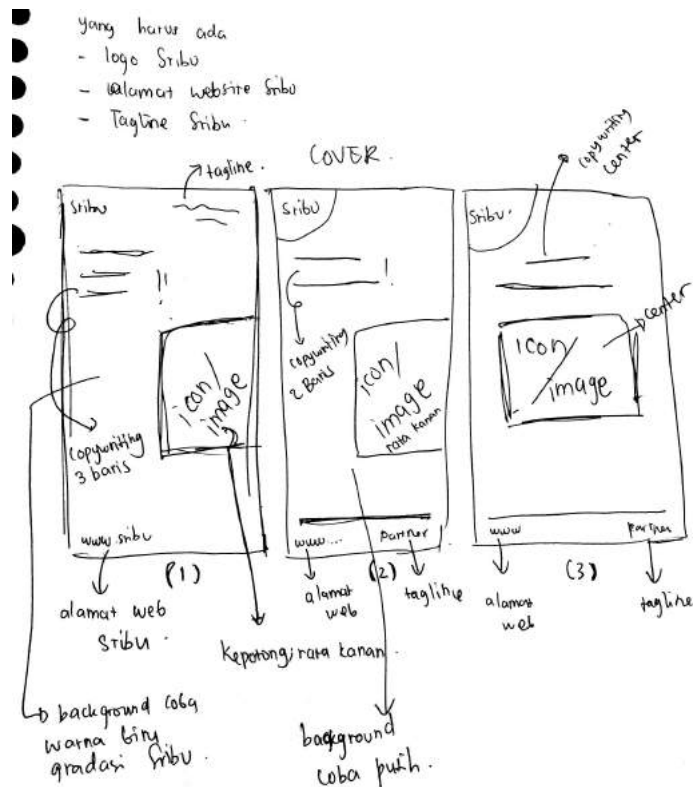 yang harus ada
- logo Sribu
- alamat website Sribu
- Tagline Sribu.
COVER.
tagline.
copywriting
center
Sribu
!
icon/
image
copywriting
3 baris
www.sribu
(1)
alamat web
Sribu.
kepotong, rata kanan.
background coba
warna biru
gradasi Sribu.
Sribu
!
copywriting
2 Baris
icon/
image
rata kanan
www...
partner
(2)
alamat
web
tagline
background
coba putih.
Sribu.
center
icon/
image
www
partner
(3)
alamat
web
tagline